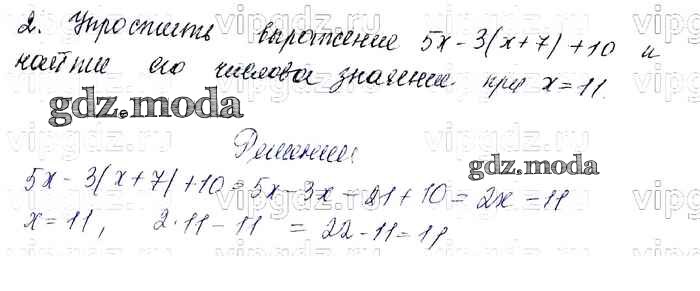 2. Упростить выражение 5x - 3(x+7) + 10 и
найти его числовое значение при x = 11.
gdz.moda
Решение:
gdz.moda
5x - 3(x+7) + 10 = 5x - 3x - 21 + 10 = 2x - 11
x = 11, 2·11 - 11 = 22 - 11 = 11
vipgdz.ru